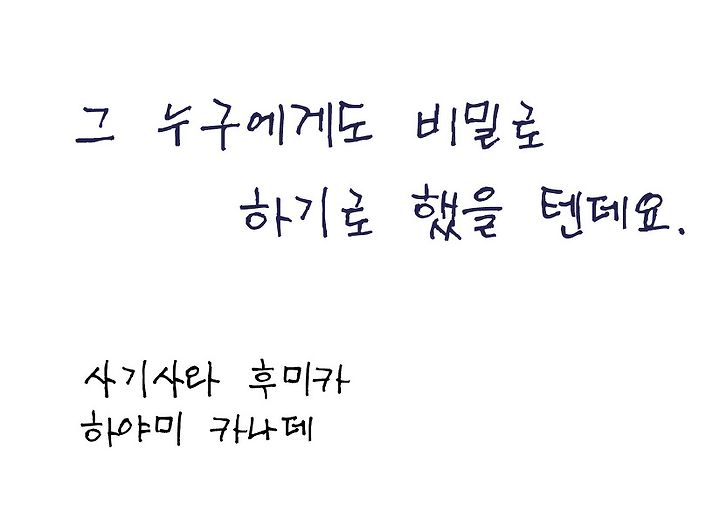 그 누구에게도 비밀로
하기로 했을 텐데요.
사기사와 후미카
하야미 카나데